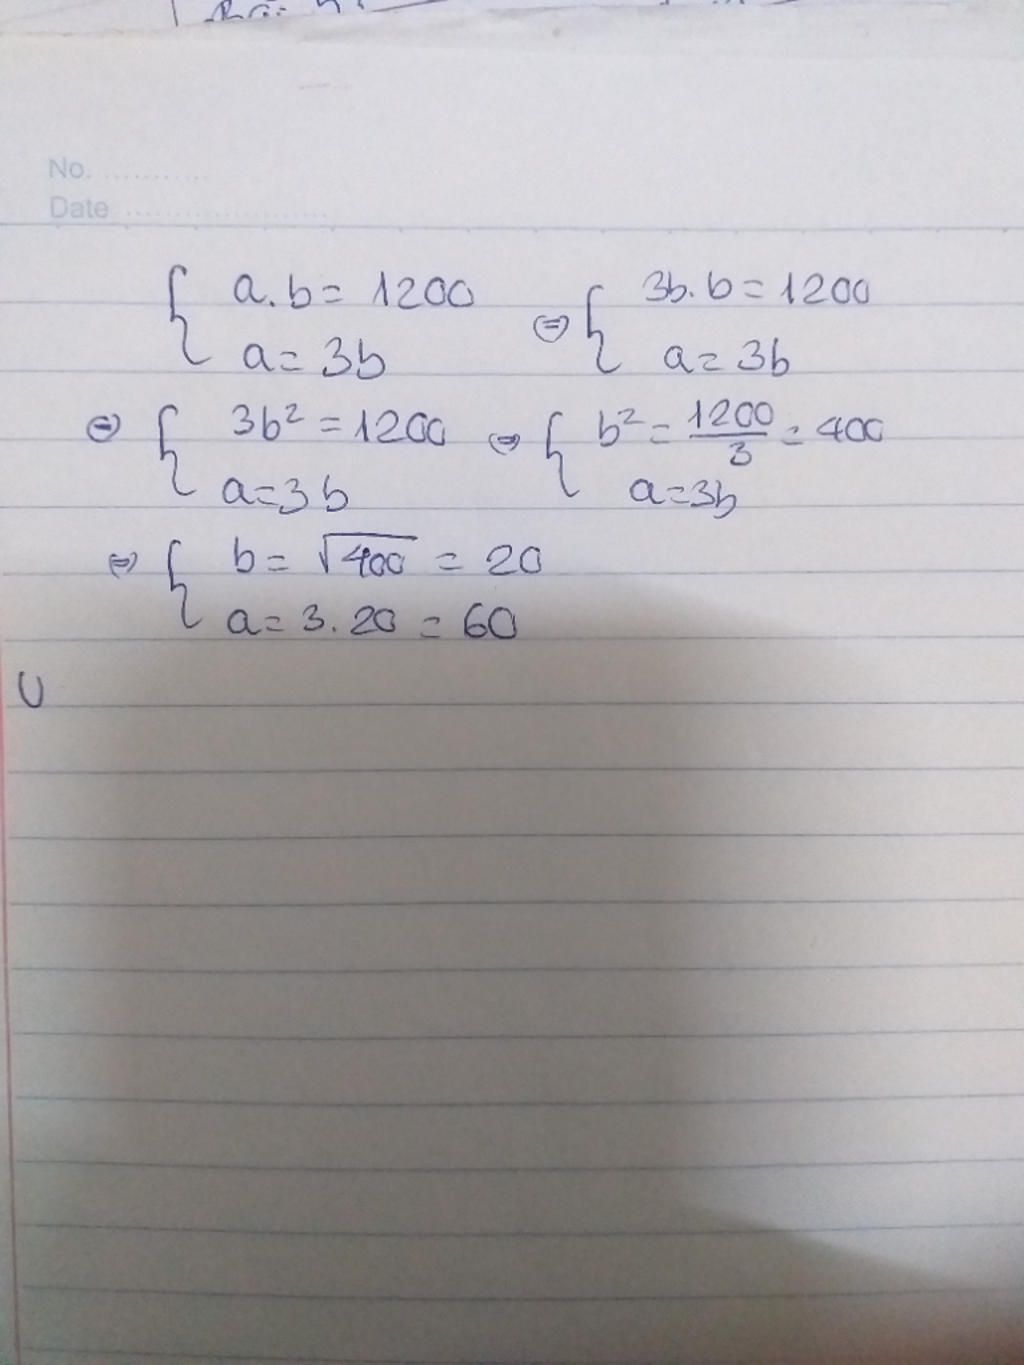 No. ...........
Date .....................
{ a.b = 1200 ⇔ { 3b.b = 1200
a = 3b a = 3b
⇔ { 3b² = 1200 ⇔ { b² = 1200/3 = 400
a = 3b a = 3b
⇔ { b = √400 = 20
a = 3.20 = 60
U